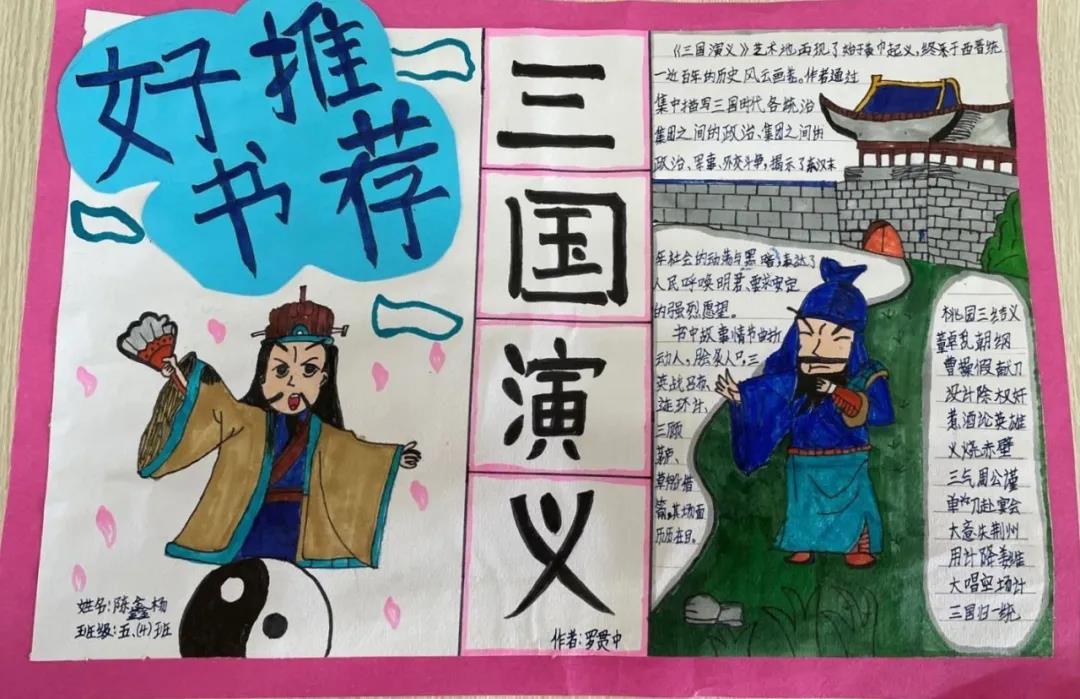 好书推荐
三国演义
作者:罗贯中
姓名:陈鑫杨
班级:五.(4)班
《三国演义》艺术地再现了始于黄巾起义,终系于西晋统
一近百年的历史风云画卷。作者通过
集中描写三国时代各统治
集团之间的政治、集团之间的
政治、军事、外交斗争,揭示了东汉末
年社会的动荡与黑暗,表达了
人民呼唤明君、要求安定
的强烈愿望。
书中故事情节曲折
动人,脍炙人口,三
英战吕布,
连环计,
三顾
茅庐,
草船借
箭,其场面
历历在目。
桃园三结义
董卓乱朝纲
曹操假献刀
设计除权奸
煮酒论英雄
火烧赤壁
三气周公瑾
单刀赴宴会
大意失荆州
用计降姜维
大唱空场计
三国归一统